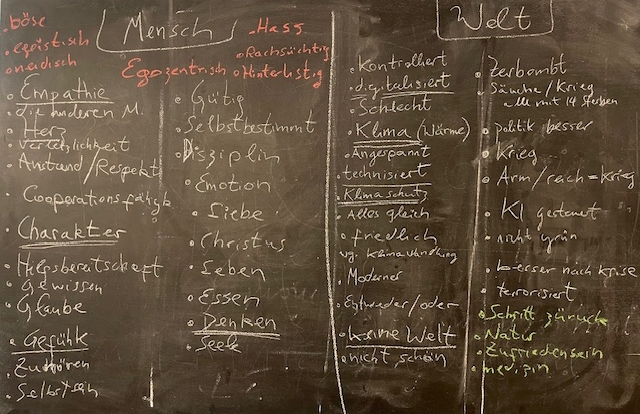 Mensch
• böse
• egoistisch
• neidisch
Egozentrisch
• Hass
• Rachsüchtig
• Hinterlistig
• Empathie
• die anderen M.
• Herz
Verletzlichkeit
• Anstand/Respekt
Cooperationsfähigk
• Charakter
• Hilfsbereitschaft
• Gewissen
• Glaube
• Gefühl
• Zuhören
• Selbstsein
• Gütig
• Selbstbestimmt
• Disziplin
• Emotion
• Liebe
• Christus
• Leben
• Essen
• Denken
• Seele
Welt
• Kontrolliert
• digitalisiert
• Schlecht
• Klima (Wärme)
• Angespannt
• technisiert
• Klimaschutz
• Alles gleich
• friedlich
vg. Klimawandlung
• Moderner
• Entweder/oder
• keine Welt
• nicht schön
• Zerbombt
• Säuche/Krieg
• alle mit 14 sterben
• politik besser
• Krieg
• Arm/reich = Krieg
• KI gesteuert
• nicht grün
• besser nach krise
• terrorisiert
• Schritt zurück
• Natur
• Zufriedensein
• medizin